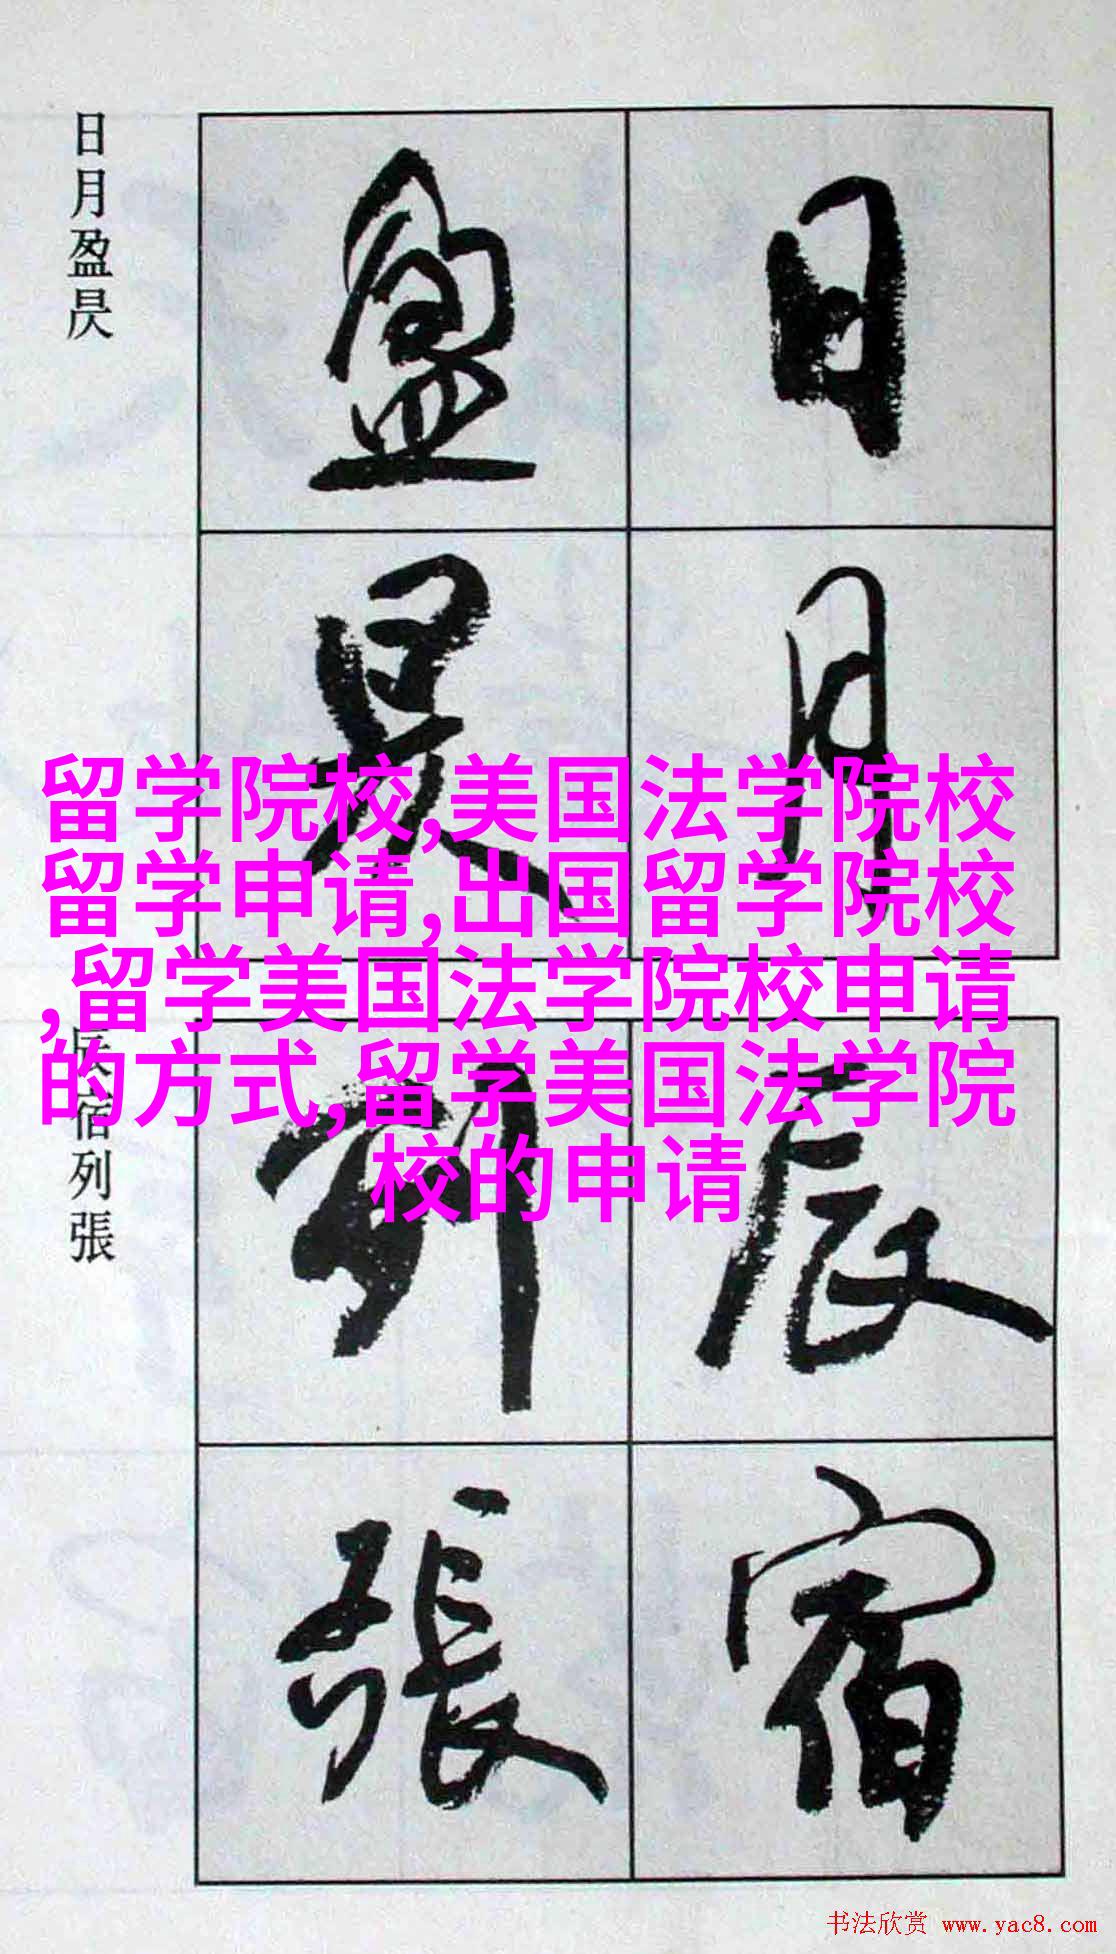 日月
盈昃
日月盈昃
辰宿
列張
辰宿列張
留学院校,美国法学院校
留学申请,出国留学院校
,留学美国法学院校申请
的方式,留学美国法学院
校的申请
书法欣赏 www.yac8.com